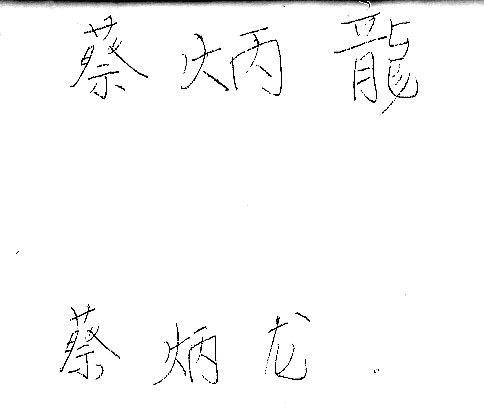 蔡炳龍
蔡炳龙.